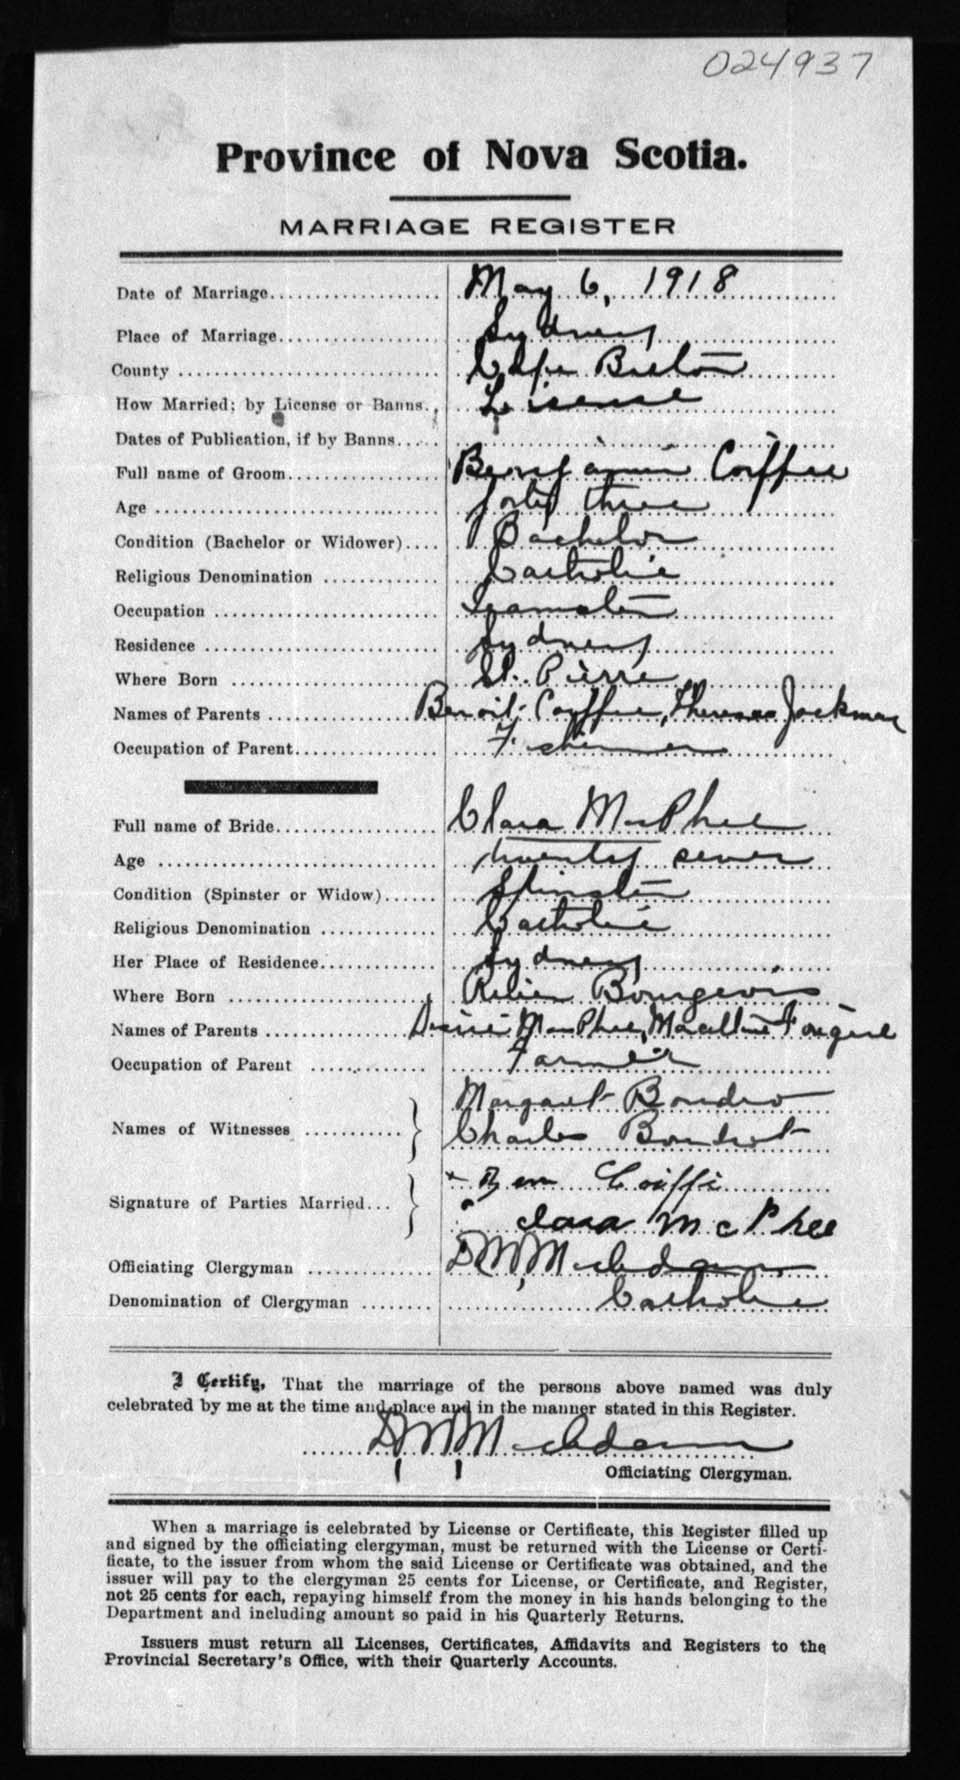 024937
Province of Nova Scotia.
MARRIAGE REGISTER
Date of Marriage May 6, 1918
Place of Marriage Sydney
County Cape Breton
How Married; by License or Banns. Lisense
Dates of Publication, if by Banns
Full name of Groom Benjamin Coiffee
Age forty three
Condition (Bachelor or Widower) Bachelor
Religious Denomination Catholic
Occupation Teamster
Residence Sydney
Where Born St. Pierre
Names of Parents Benoit Coyffee, Theresa Jackman
Occupation of Parent Fisherman
Full name of Bride Clara MacPhee
Age twenty seven
Condition (Spinster or Widow) Spinster
Religious Denomination Catholic
Her Place of Residence Sydney
Where Born River Bourgeois
Names of Parents Desirè MacPhee, Marcelline Fougere
Occupation of Parent Farmer
Margaret Boudro
Names of Witnesses Charles Boudrot
x Ben Coiffi
Signature of Parties Married
Clara McPhee
Officiating Clergyman D M McAdam
Denomination of Clergyman Catholic
I Certify, That the marriage of the persons above named was duly
celebrated by me at the time and place and in the manner stated in this Register.
D M McAdam
Officiating Clergyman.
When a marriage is celebrated by License or Certificate, this Register filled up
and signed by the officiating clergyman, must be returned with the License or Certi-
ficate, to the issuer from whom the said License or Certificate was obtained, and the
issuer will pay to the clergyman 25 cents for License, or Certificate, and Register,
not 25 cents for each, repaying himself from the money in his hands belonging to the
Department and including amount so paid in his Quarterly Returns.
Issuers must return all Licenses, Certificates, Affidavits and Registers to the
Provincial Secretary's Office, with their Quarterly Accounts.